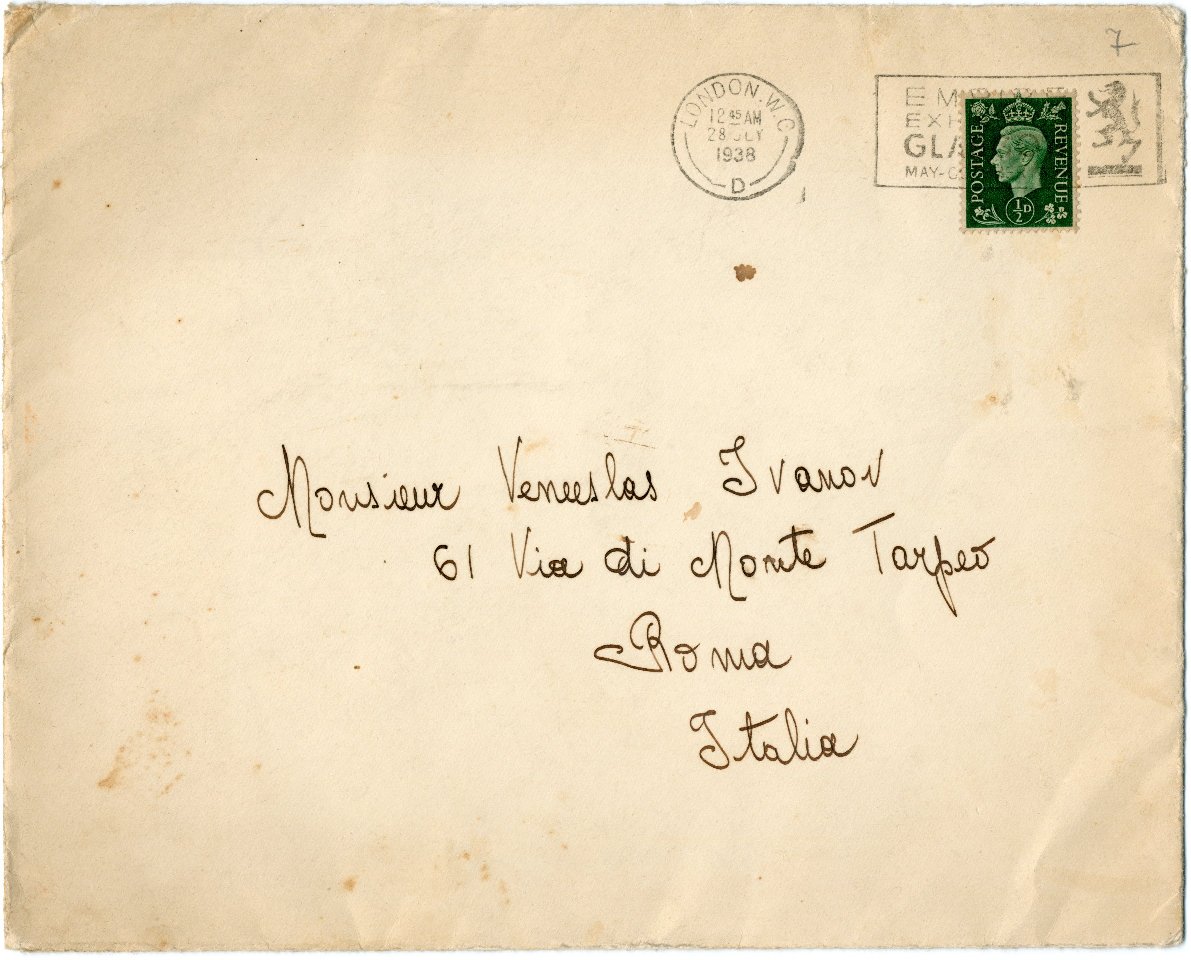 7
LONDON.W.C
12 45 AM
28 JLY
1938
D
GLA
MAY-
POSTAGE
REVENUE
½D
Monsieur Venceslas Ivanov
61 Via di Monte Tarpeo
Roma
Italia